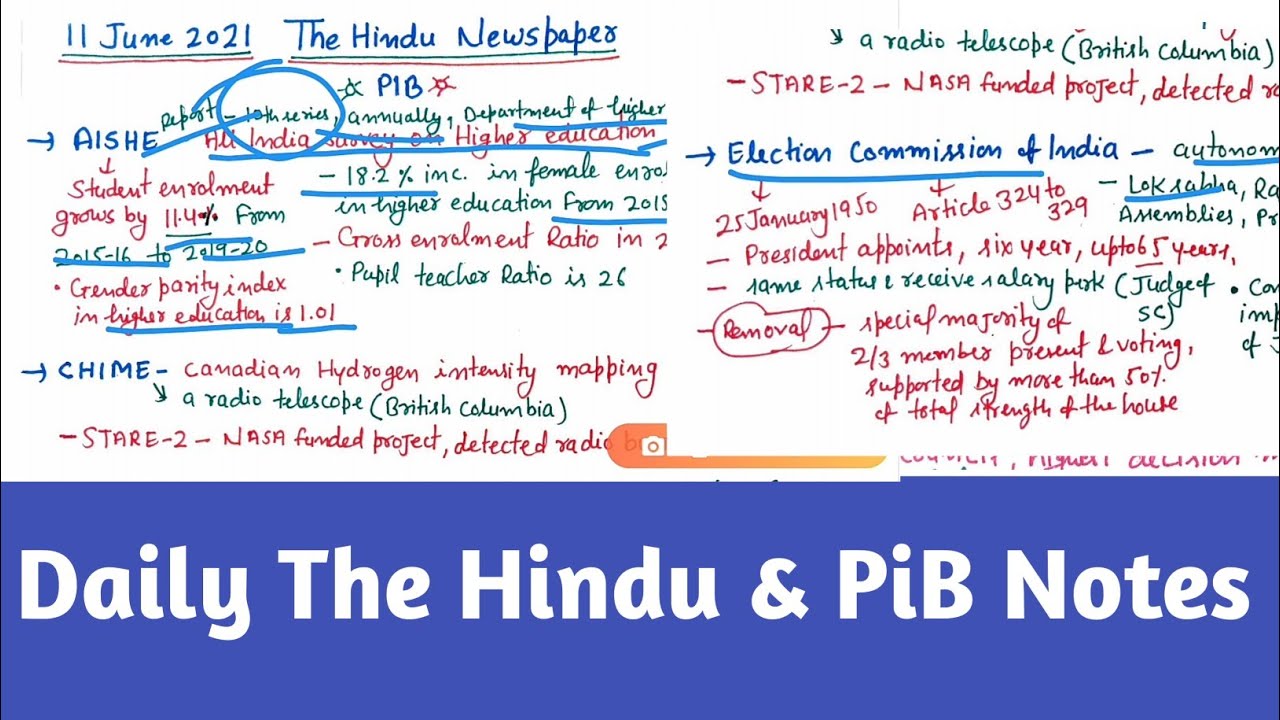 11 June 2021 The Hindu Newspaper
PIB
Report - 10th series, annually, Department of higher
→ AISHE All India survey on Higher education
Student enrolment
grows by 11.4% From
2015-16 to 2019-20
• Gender parity index
in higher education is 1.01
- 18.2% inc. in female enrol
in higher education From 2015
- Gross enrolment Ratio in 2
• Pupil teacher Ratio is 26
→ CHIME - Canadian Hydrogen intensity mapping
a radio telescope (British Columbia)
- STARE-2 - NASA funded project, detected radio
a radio telescope (British Columbia)
- STARE-2 - NASA funded project, detected ra
→ Election Commission of India - autonom
25 January 1950
Article 324 to
329
- Loksabha, Ra
Assemblies, Pr
- President appoints, six year, upto 65 years,
- same status & receive salary perk (Judge of
SC)
• Con
imp
of J
- Removal - special majority of
2/3 member present & voting,
supported by more than 50%
of total strength of the house
highest decision
Daily The Hindu & PiB Notes